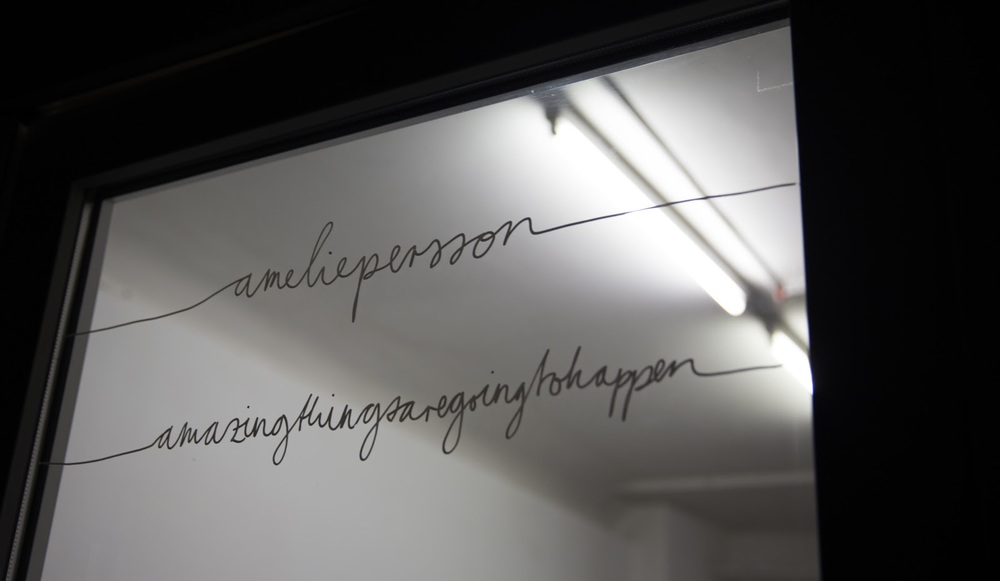 ameliepersson
amazingthingsaregoingtohappen